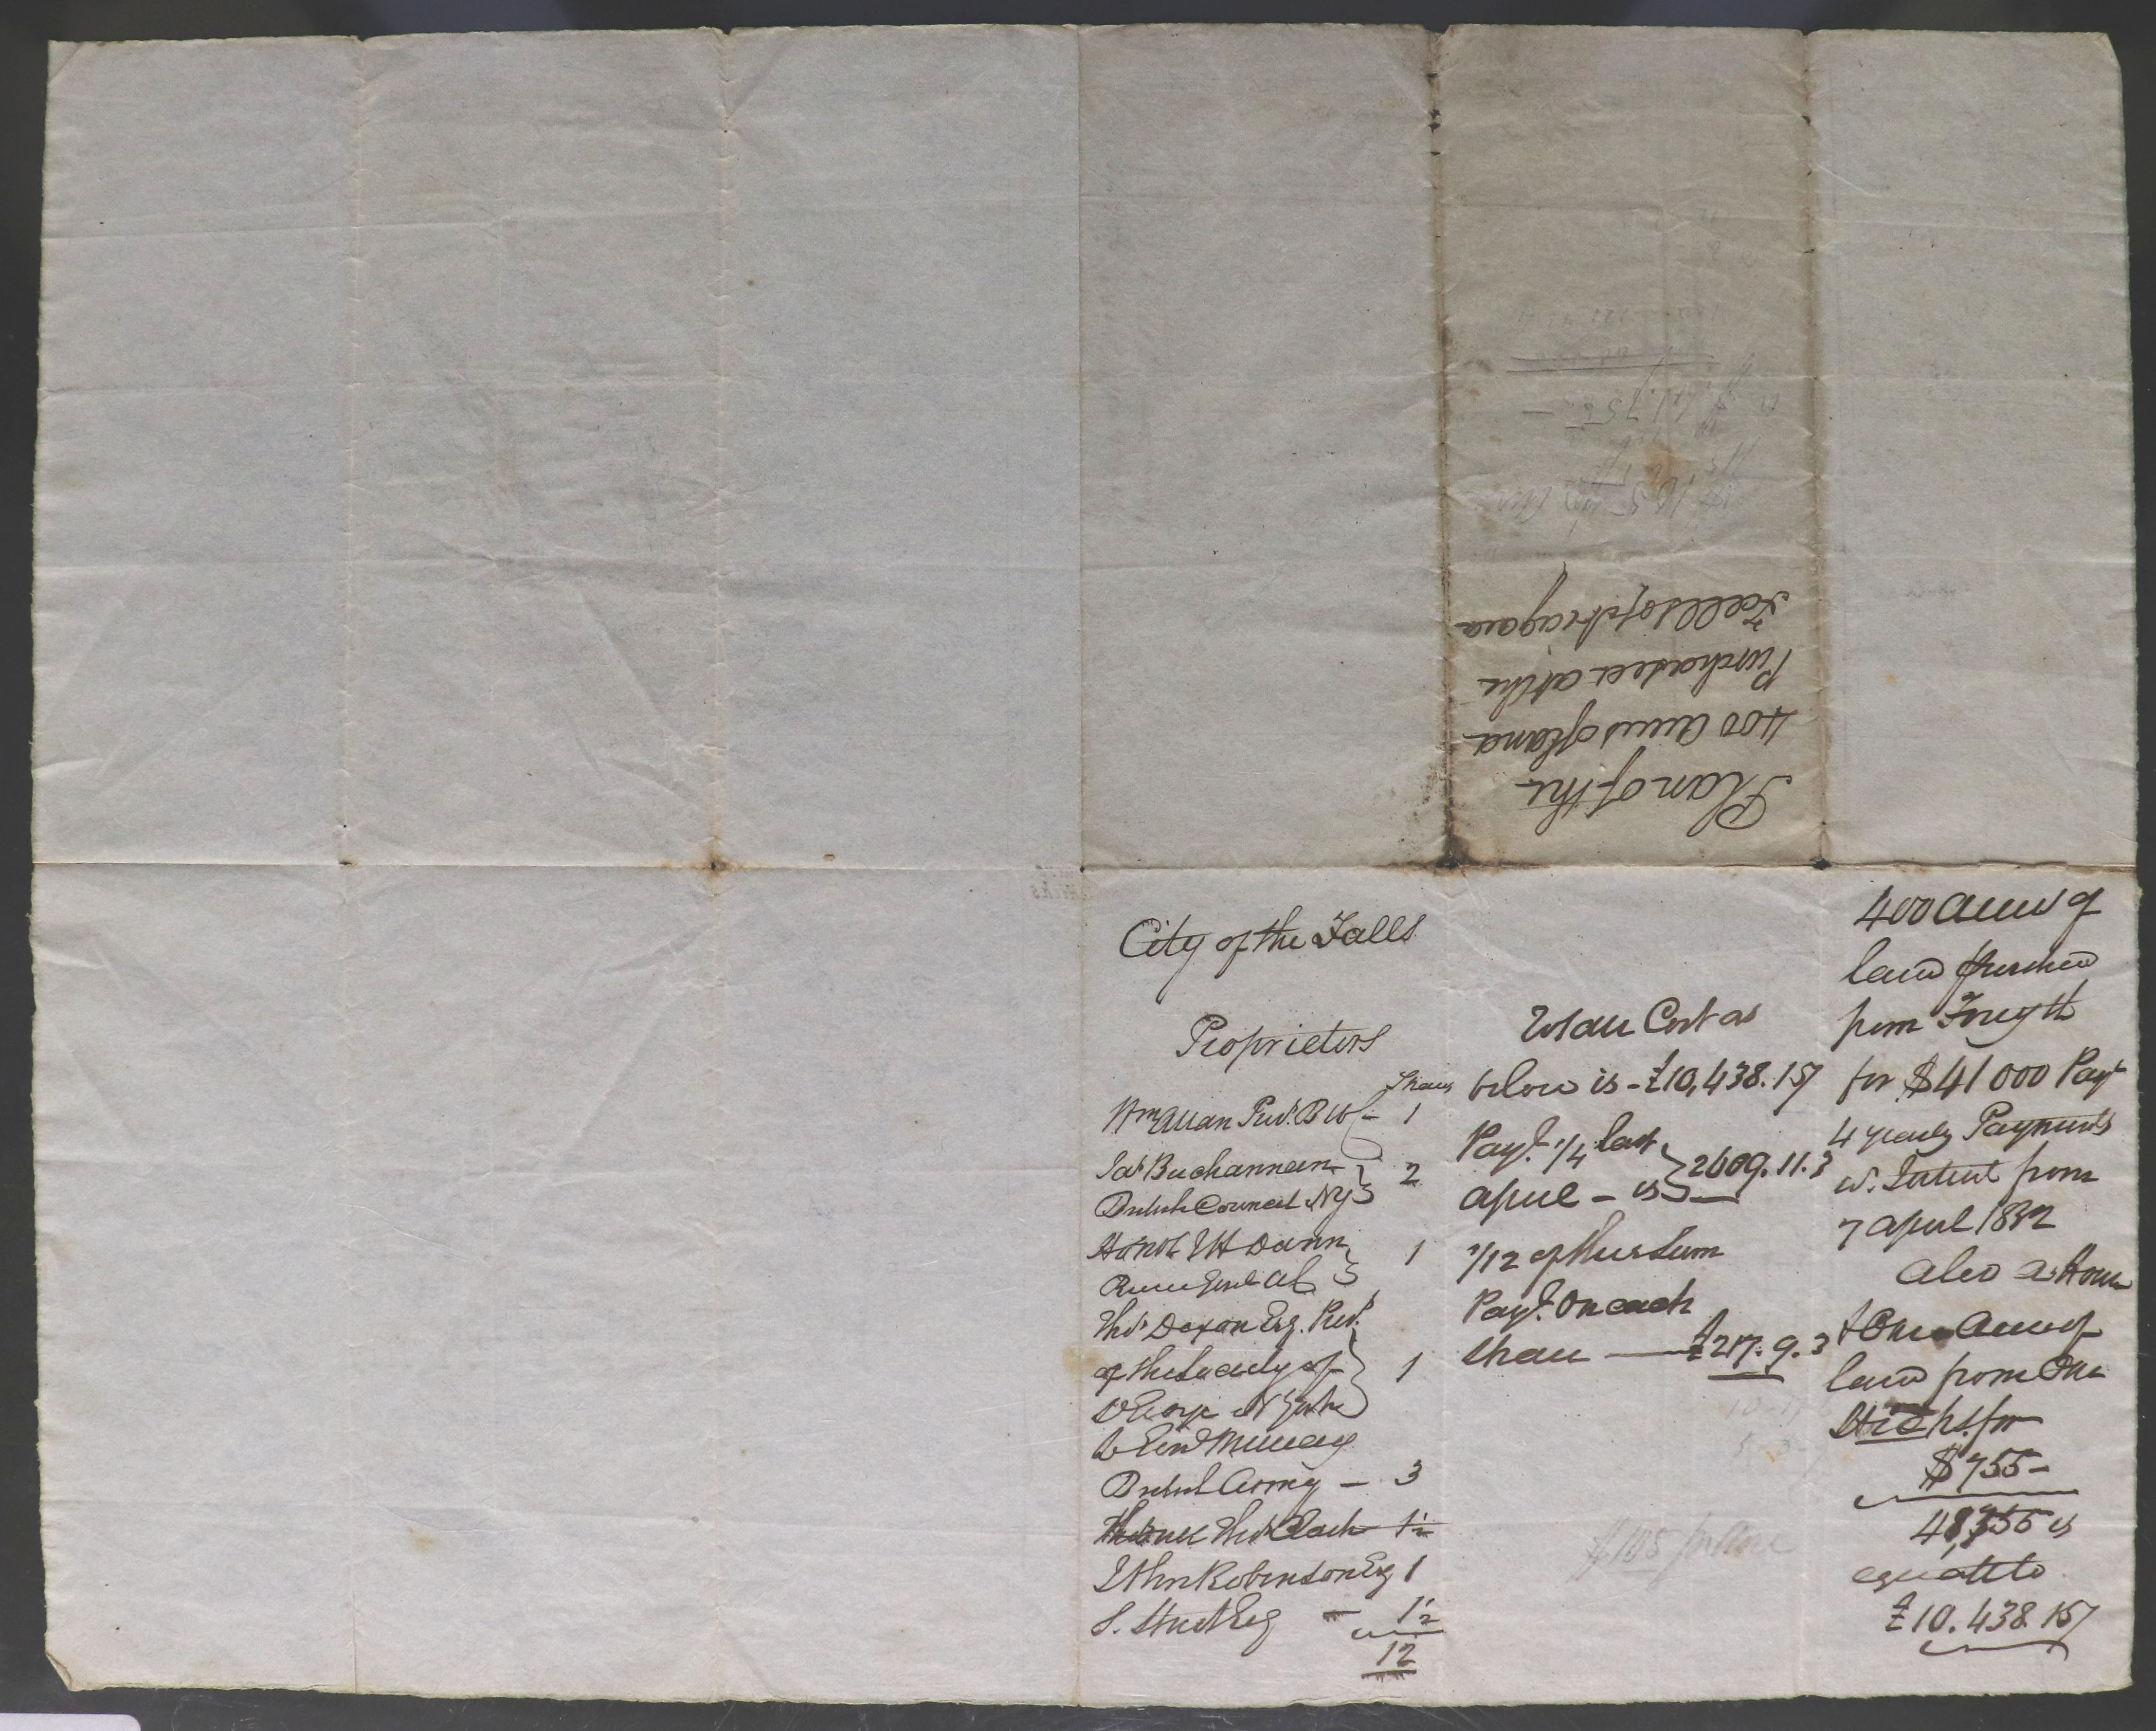 Plan of the
400 acres of Land
Purchased at the
Falls of Niagara
City of the Falls
Proprietors
Shares
Wm Allan Prest. B 1
Jas Buchannan
British Council NY 2
J H Dunn 1
Thos Dixon Esq. Prest.
of the Society of 1
St George N York
Lt Genl Murray
British Army - 3
Thos Clark 1½
J Robinson Esq 1
S. Street Esq - 1½
12
Total Cost as
below is - £10,438.15/
Payt. 1/4 last
April - is 2609.11.3
1/12 of this Sum
Payt. on each
Share £217.9.3
400 acres of
land purchd
from Forsyth
for $41000 Payt
4 yearly Payments
w. Interest from
7 april 1832
also a House
& One Acre of
land from
for
$755-
41,755 is
equal to
£10.438.15/